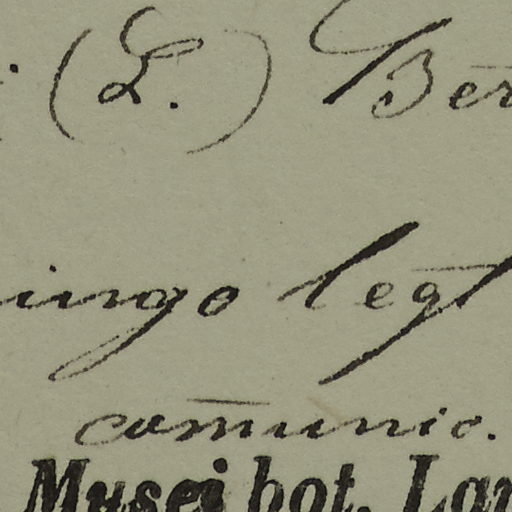 (L.) Ber
ingo legt
com̄unic.
Musei bot. Lan